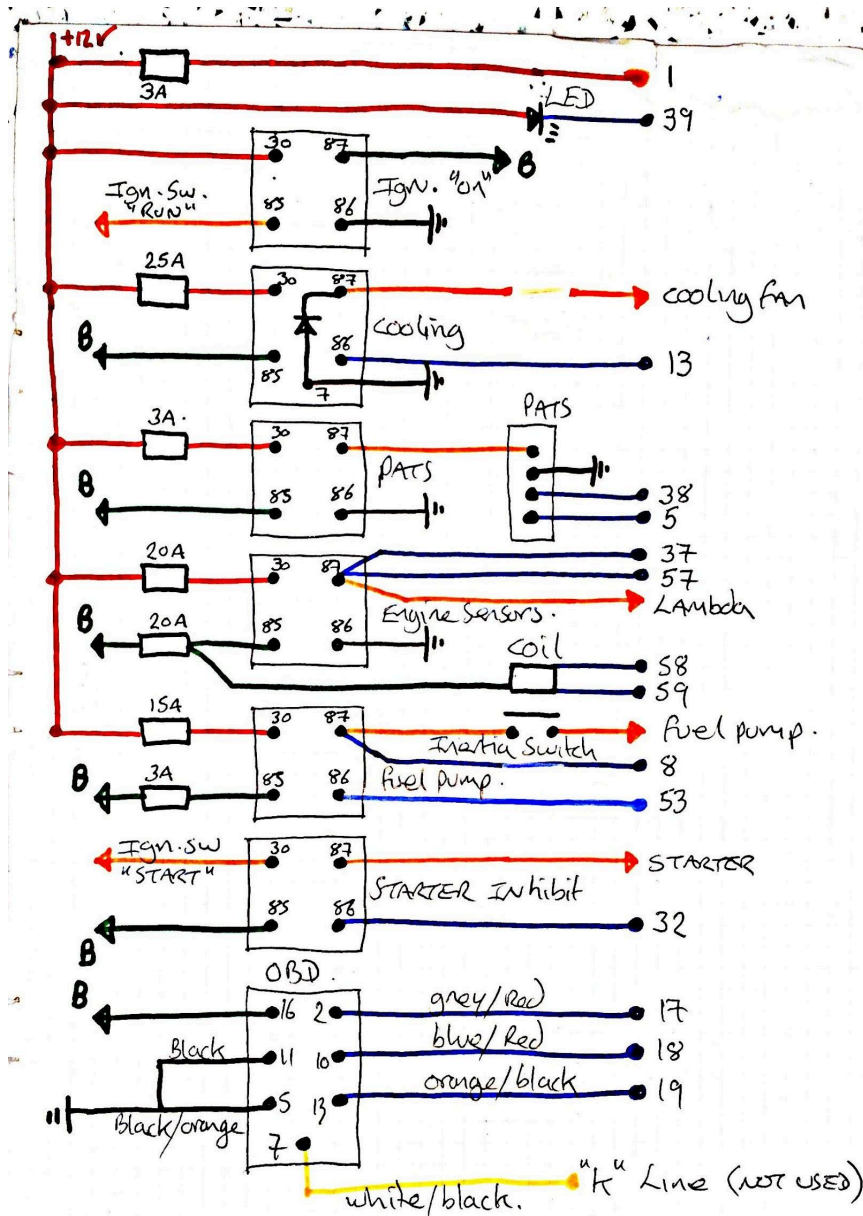 +12V
3A
1
LED
39
30 87
B
Ign. "On"
Ign. Sw.
"RUN"
85 86
25A
30 87
cooling fan
cooling
B
86
85
13
7
PATS
3A.
30 87
PATS
B
85 86
38
5
20A
30 87
37
57
Lambda
Engine Sensors.
B
20A
85 86
coil
58
59
15A
30 87
fuel pump.
Inertia Switch
8
B
3A
85 86
fuel pump.
53
Ign. sw
"START"
30 87
STARTER
STARTER INhibit
85 86
32
B
OBD.
B
16 2
grey/Red
17
Black
11 10
blue/Red
18
5 13
orange/black
19
Black/orange
7
"K" Line (NOT USED)
white/black.